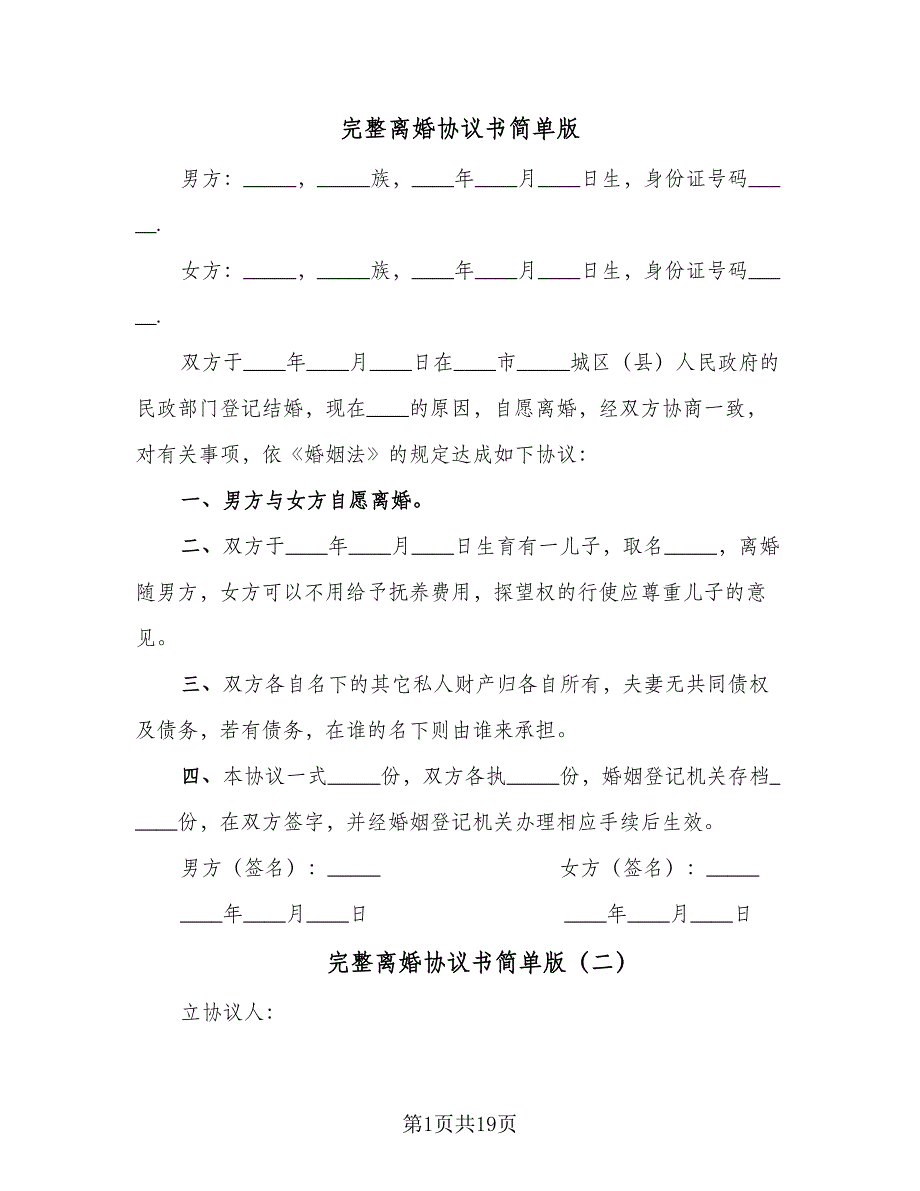 完整离婚协议书简单版
男方：_____，_____族，____年____月____日生，身份证号码___
__.
女方：_____，_____族，____年____月____日生，身份证号码___
__.
双方于____年____月____日在____市_____城区（县）人民政府的
民政部门登记结婚，现在____的原因，自愿离婚，经双方协商一致，
对有关事项，依《婚姻法》的规定达成如下协议：
一、男方与女方自愿离婚。
二、双方于____年____月____日生育有一儿子，取名_____，离婚
随男方，女方可以不用给予抚养费用，探望权的行使应尊重儿子的意
见。
三、双方各自名下的其它私人财产归各自所有，夫妻无共同债权
及债务，若有债务，在谁的名下则由谁来承担。
四、本协议一式_____份，双方各执_____份，婚姻登记机关存档_
____份，在双方签字，并经婚姻登记机关办理相应手续后生效。
男方（签名）：_____ 女方（签名）：_____
____年____月____日 ____年____月____日
完整离婚协议书简单版（二）
立协议人：
第1页共19页